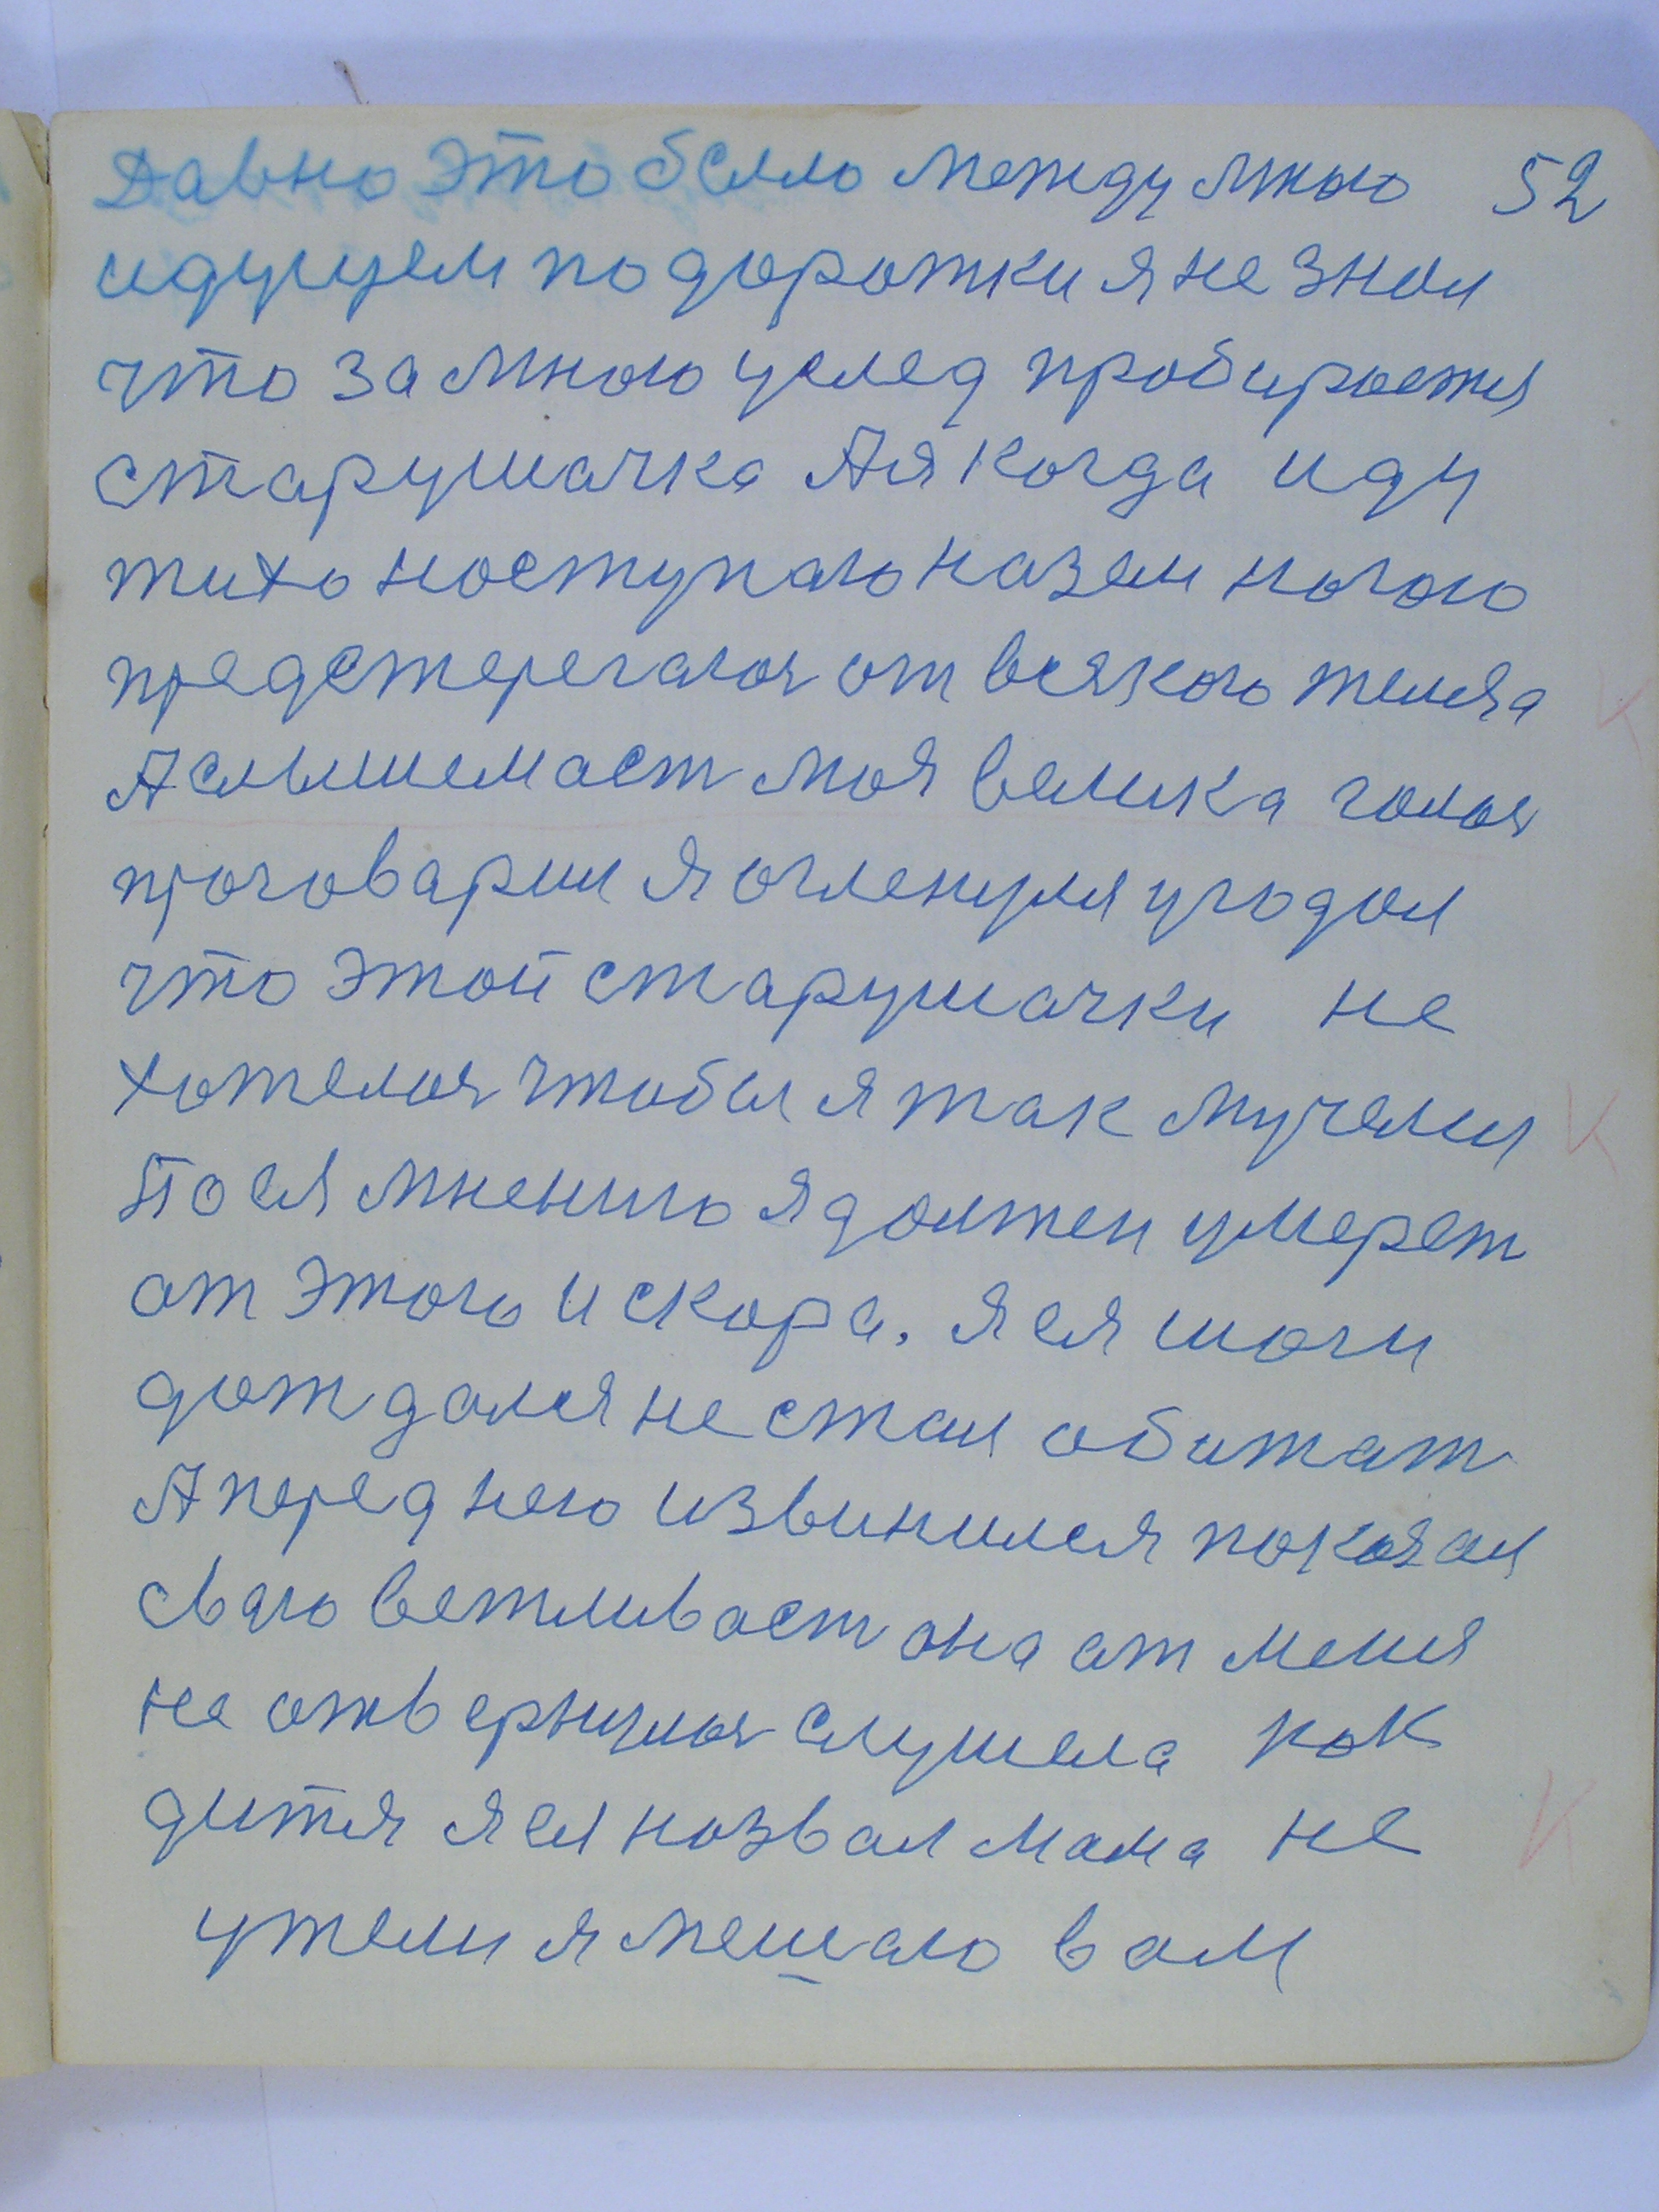 Давно это было между мною 52
идущем по дорожки я не знал
что за мною услед пробирается
старушачка А я когда иду
тихо ноступаю назем ногою
предстерегаюся от всякого
А слышемаст моя велика голося
проговарил я огленулся угодал
что этой старушачки не
хотелося чтобы я так мучелся
По ея мнению я должен умерет
от этого и скора. я ея шоги
дождался не стал обижат
А перед нею извинился показал
сваю вежливаст она от меня
не отвернулася слушела как
дитя я ея назвал мама не
ужели я мешаю вам